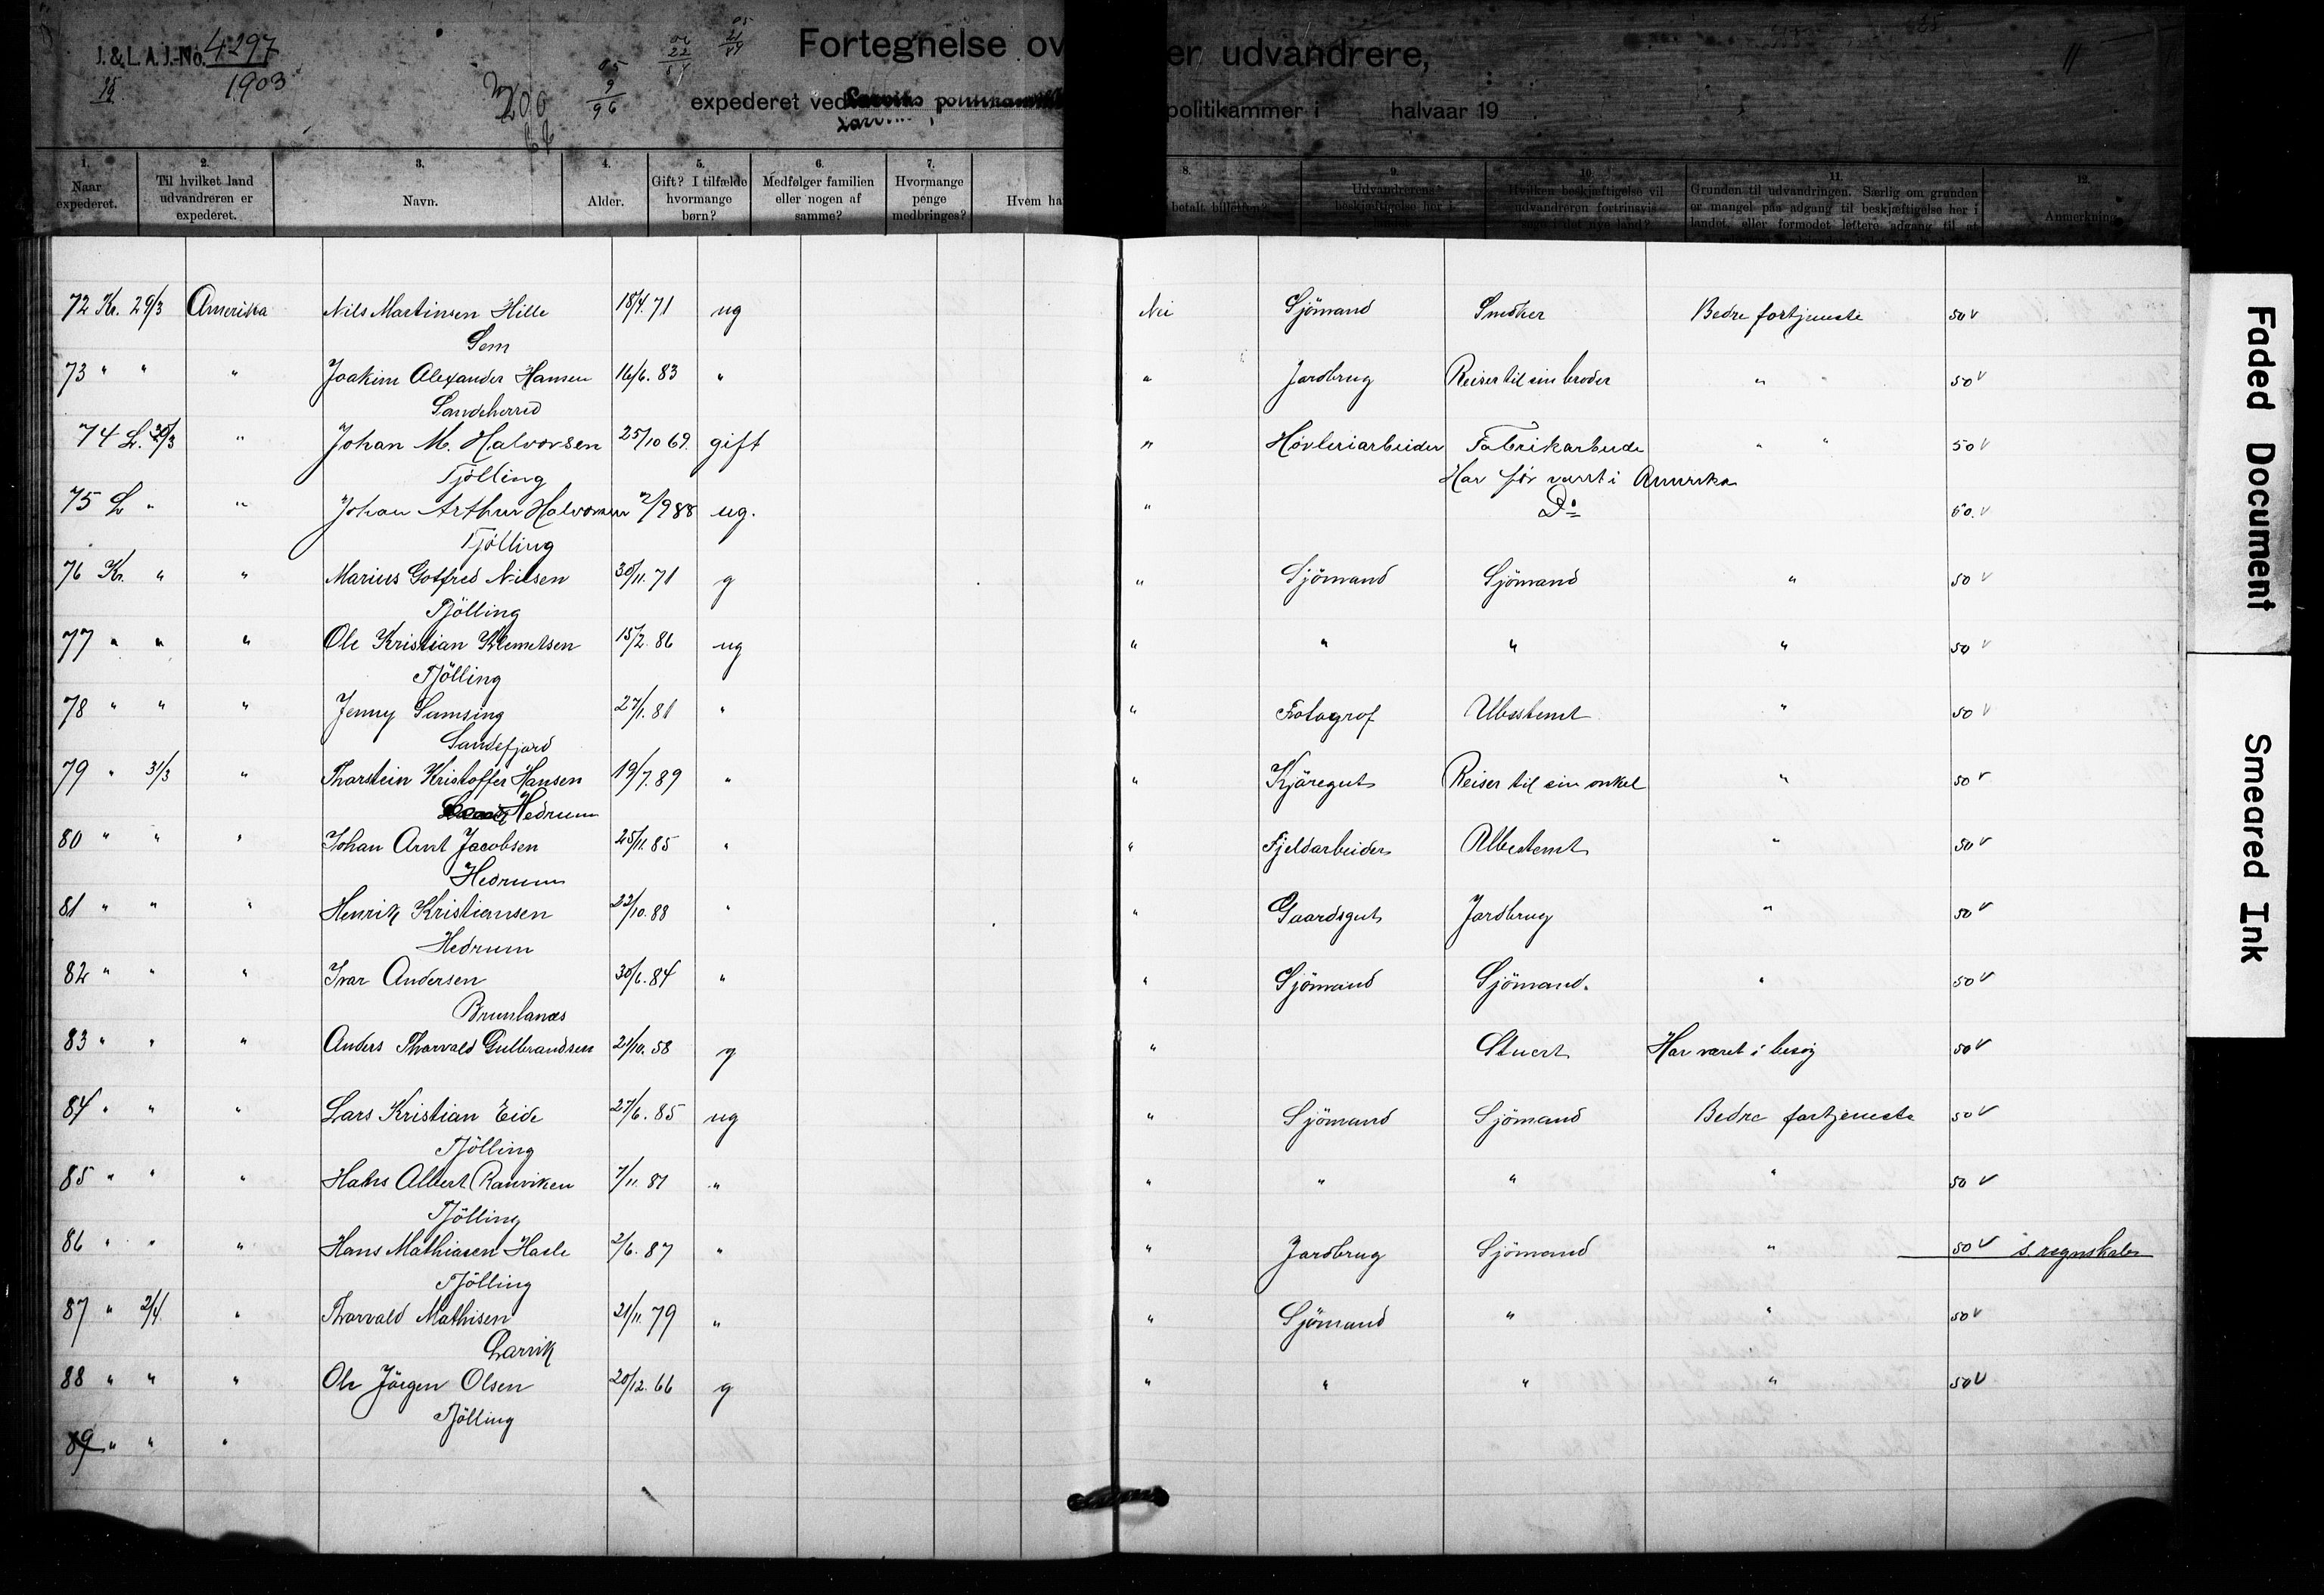 J. & L. A. J.-No. 4297
1903
Fortegnelse ov er udvandrere,
expederet ved politikammer i halvaar 19
1. Naar expederet.
2. Til hvilket land udvandreren er expederet.
3. Navn.
4. Alder.
5. Gift? I tilfælde hvormange børn?
6. Medfølger familien eller nogen af samme?
7. Hvormange penge medbringes?
Hvem ha
8. betalt billetten?
9. Udvandrerens beskjæftigelse her i landet.
10. Hvilken beskjæftigelse vil udvandreren fortrinsvis søge i det nye land?
11. Grunden til udvandringen. Særlig om grunden er mangel paa adgang til beskjæftigelse her i landet, eller formodet lettere adgang til at
12. Anmerkning.
72 Kr. 29/3 Amerika Nils Martinsen Hille 18/4. 71 ug Nei Sjömand Snedker Bedre fortjeneste 50 v
Sem
73 " " " Joakim Alexander Hansen 16/6. 83 " " Jordbrug Reiser til sin broder " " 50 v
Sandeherred
74 L. 30/3 " Johan M. Halvorsen 25/10 69. gift " Høvleriarbeider Fabrikarbeide " " 50 v
Tjölling Har för været i Amerika
75 L " " Johan Arthur Halvorsen 2/9 88 ug. " Do 50. v
Tjölling
76 Kr. " " Marius Gotfred Nilsen 30/11. 71 g " Sjömand Sjömand " 50 v
Tjölling
77 " " " Ole Kristian Klemetsen 15/2. 86 ug " " " " 50 v
Tjölling
78 " " " Jenny Samsing 27/1. 81 " " Fotograf Ubestemt " 50 v
Sandefjord
79 " 31/3 " Thorstein Kristoffer Hansen 19/7. 89 " " Kjöregut Reiser til sin onkel " 50 v
Hedrum
80 " " " Johan Arnt Jacobsen 25/11. 85 " " Fjeldarbeider Ubestemt " 50 v
Hedrum
81 " " " Henrik Kristiansen 22/10. 88 " " Gaardsgut Jordbrug " 50 v
Hedrum
82 " " " Ivar Andersen 30/6. 84 " " Sjömand Sjömand. " 50 v
Brunlanæs
83 " " " Anders Thorvald Gulbrandsen 21/10. 58 g " Stuert Har været i besög 50 v
84 " " " Lars Kristian Eide 27/6. 85 ug " Sjömand Sjömand Bedre fortjeneste 50 v
Tjölling
85 " " " Hans Albert Ranviken 7/11. 81 " " " " " 50 v
Tjölling
86 " " " Hans Mathiasen Hasle 2/6. 87 " " Jordbrug Sjömand " 50 v s regnskaber
Tjölling
87 " 2/4 " Thorvald Mathisen 21/11. 79 " " Sjömand " " 50 v
Larvik
88 " " " Ole Jörgen Olsen 20/12. 66 g " " " " 50 v
Tjölling
89 " " "
Faded Document
Smeared Ink